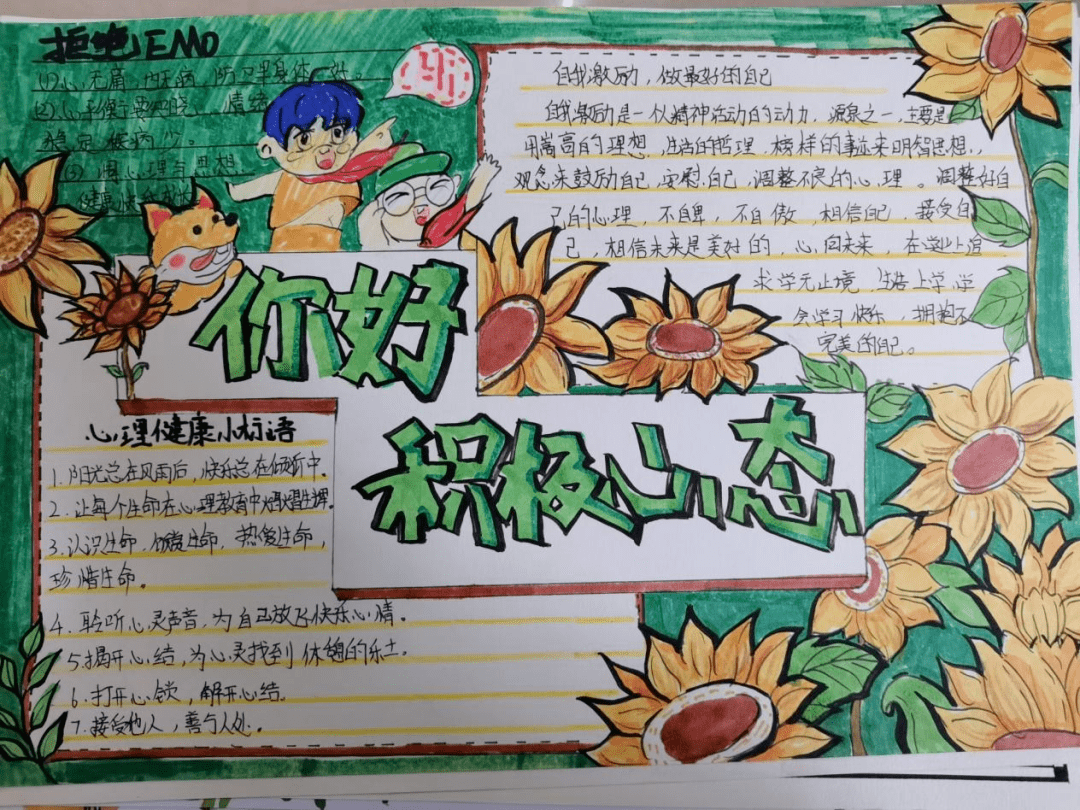 拒绝EMO
(1)心无病,防卫早身体好。
(2)心平衡要知晓,情绪
稳定疾病少。
(3)调心理与思想
健康快
自我激励,做最好的自己
自我激励是一仫精神活动的动力,源泉之一,主要是
用崇高的理想,生活的哲理,榜样的事迹来明智思想,
观念来鼓励自己,安慰自己,调整不良的心理。调整好自
己的心理,不自卑,不自傲,相信自己,接受自
己,相信未来是美好的,心向未来,在学业上追
求学无止境,生活上学学
会学习快乐,拥抱不
完美的自己。
你好
积极心态
心理健康小标语
1.阳光总在风雨后,快乐总在倾听中。
2.让每个生命在心理教育中熠熠生辉。
3.认识生命,敬爱生命,热爱生命,
珍惜生命。
4.聆听心灵声音,为自己放飞快乐心情。
5.揭开心结,为心灵找到休憩的乐土。
6.打开心锁,解开心结。
7.接受他人,善与人处。